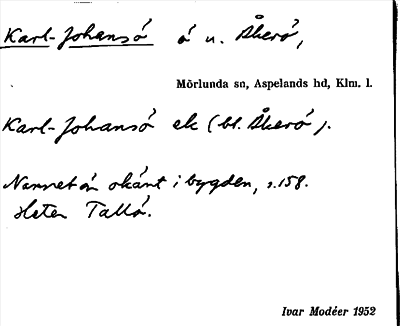 Karl-Johansö ö n. Åkerö,
Mörlunda sn, Aspelands hd, Klm. l.
Karl-Johansö ek (bl. Åkerö).
Namnet är okänt i bygden, s.158.
Heter Tallö.
Ivar Modéer 1952